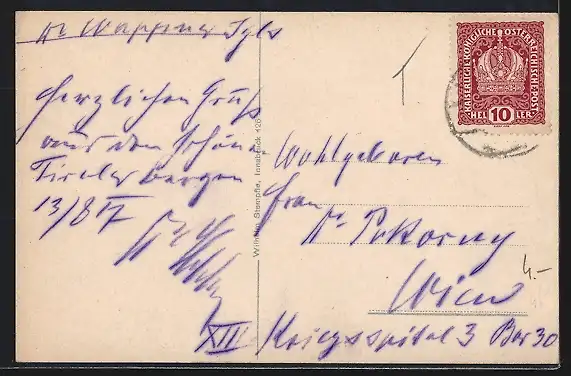 Dr Wappner Igls
Herzlichen Gruß
aus den schönen
Tiroler bergen
13/8 17
Wilhelm Stempfle, Innsbruck 420
KAISERLICHE KÖNIGLICHE ÖSTERREICHISCHE POST
HEL 10 LER
Wohlgeboren
Frau
Dr Pokorny
Wien
XIII Kriegsspital 3 Bar 30
4.-